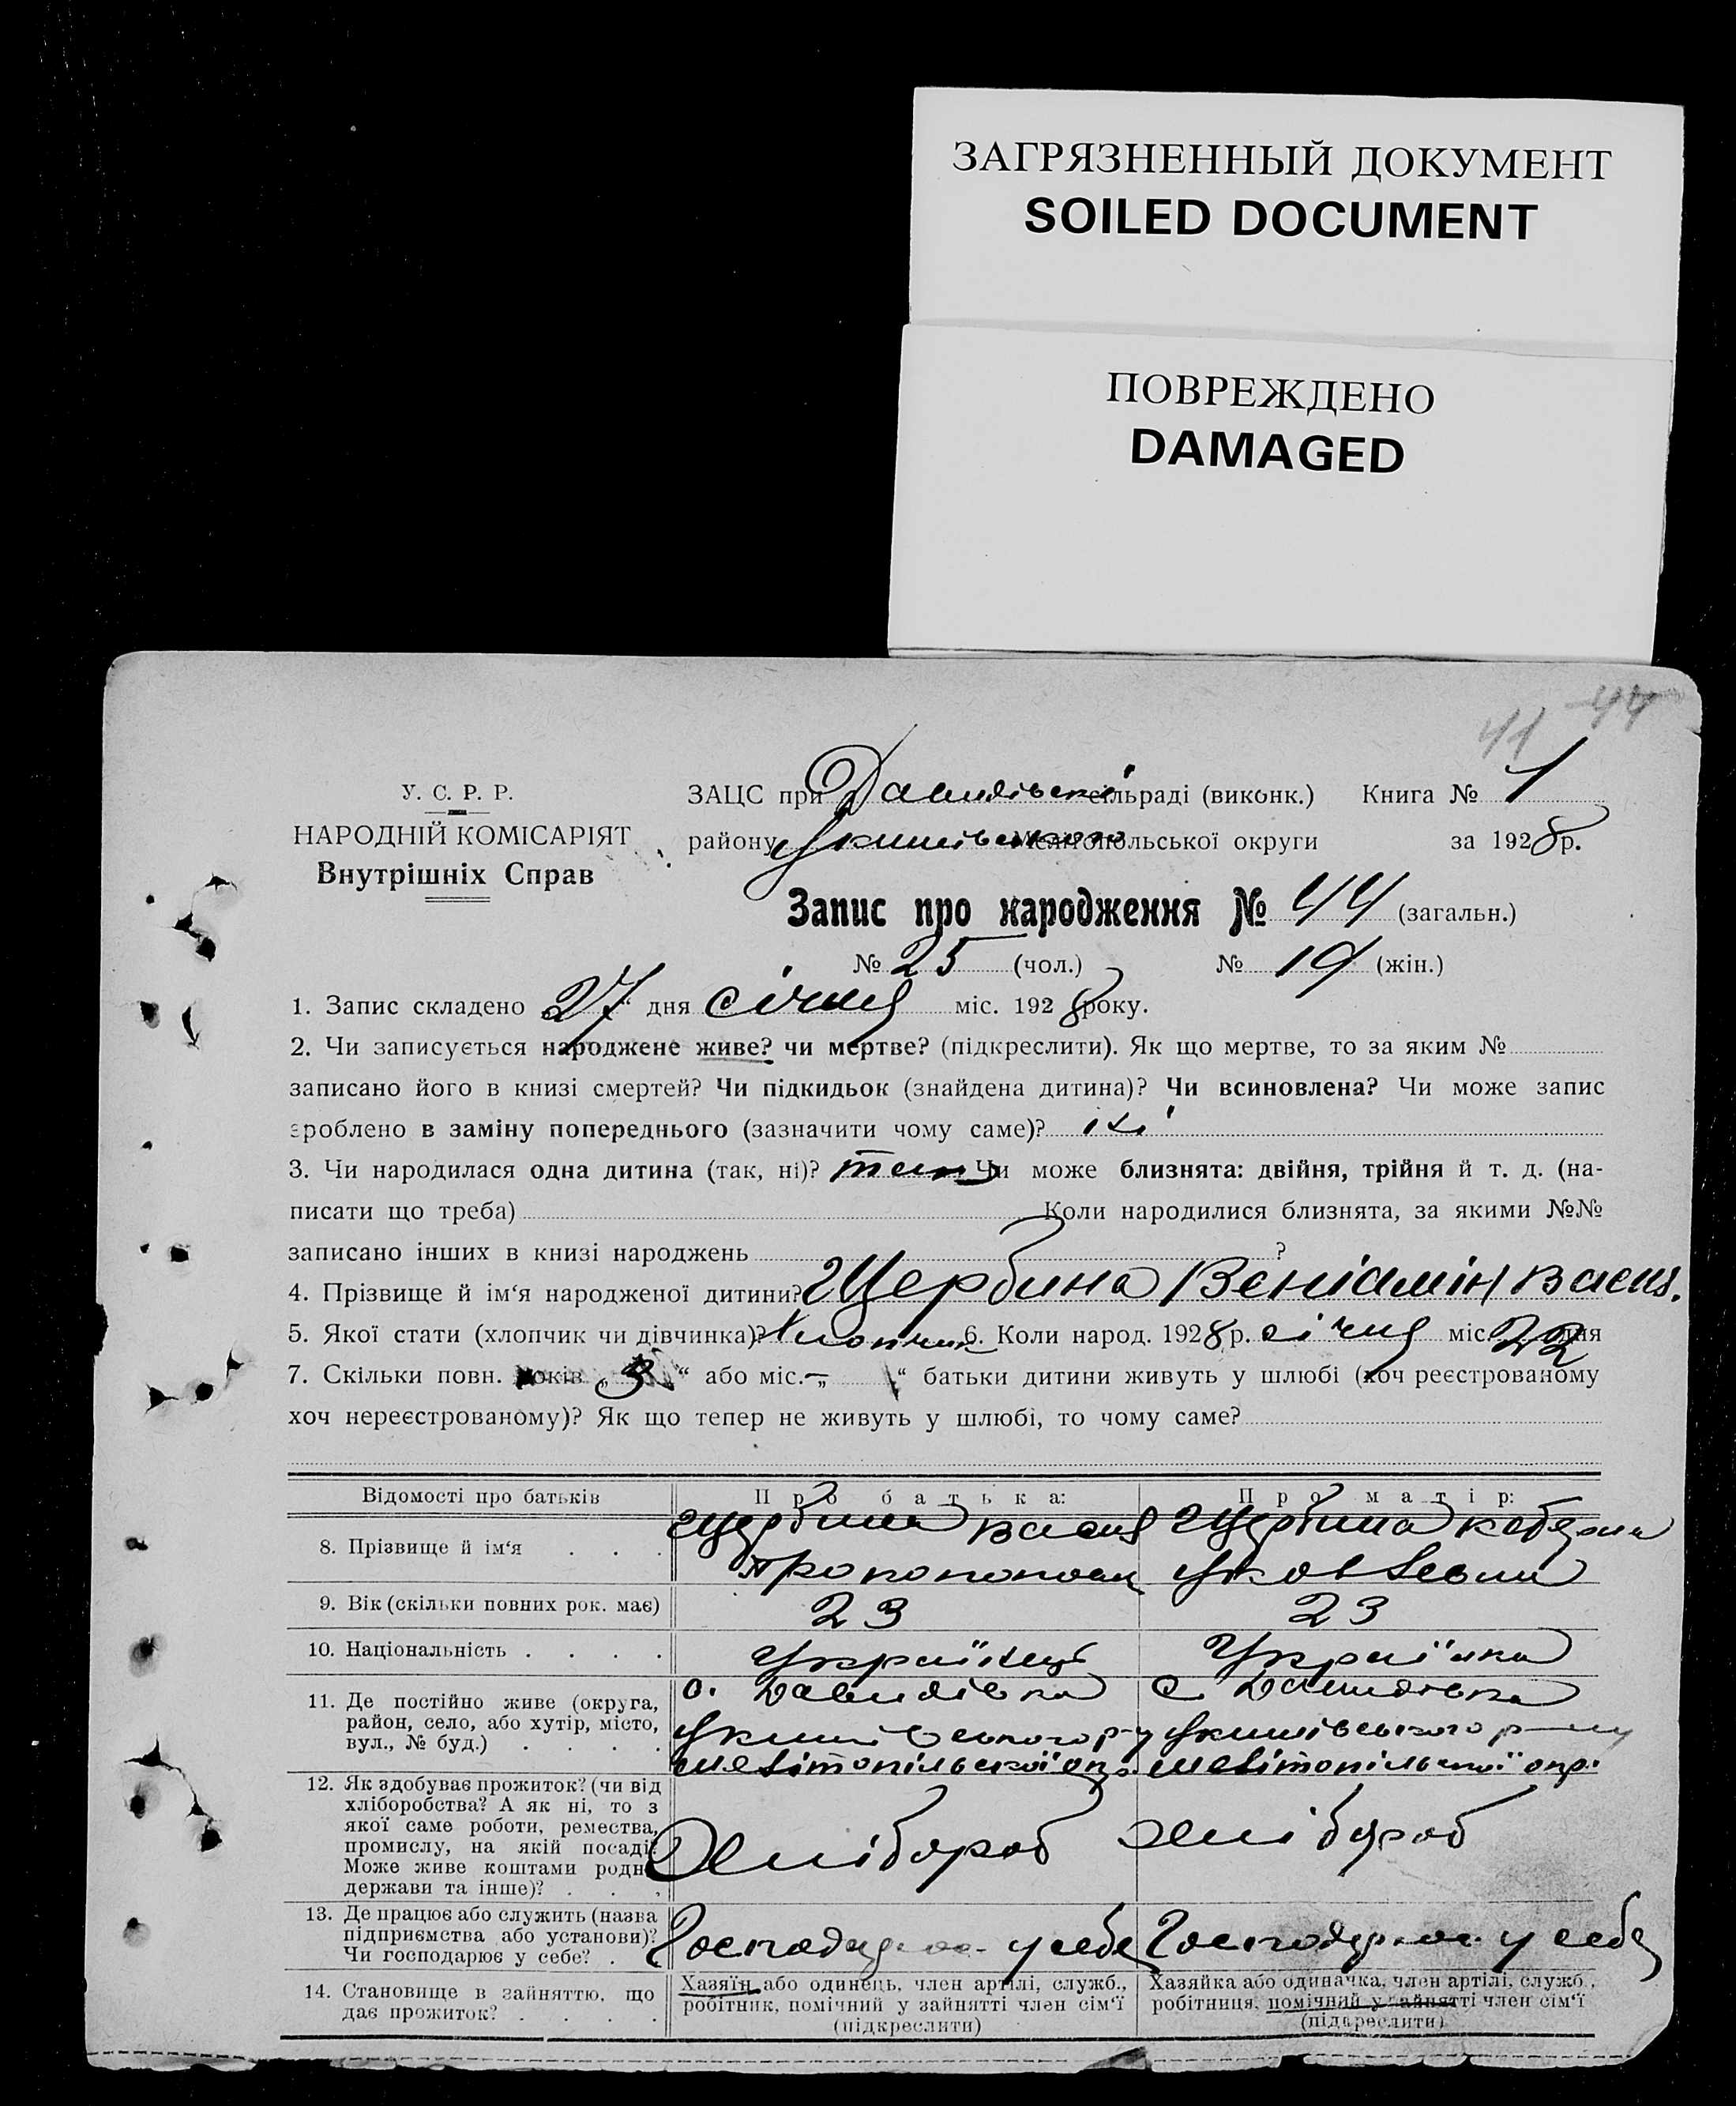 ЗАГРЯЗНЕННЫЙ ДОКУМЕНТ
SOILED DOCUMENT
ПОВРЕЖДЕНО
DAMAGED
44
41
У. С. Р. Р.
НАРОДНІЙ КОМІСАРІЯТ
Внутрішніх Справ
ЗАЦС при Давидівскі сільраді (виконк.) Книга № 1
району Якимівського Мелітопольської округи за 1928 р.
Запис про народження № 44 (загальн.)
№ 25 (чол.) № 19 (жін.)
1. Запис складено 27 “ дня січня міс. 1928 року.
2. Чи записується народжене живе? чи мертве? (підкреслити). Як що мертве, то за яким №
записано його в книзі смертей? Чи підкидьок (знайдена дитина)? Чи всиновлена? Чи може запис
зроблено в заміну попереднього (зазначити чому саме)?
3. Чи народилася одна дитина (так, ні)? так Чи може близнята: двійня, трійня й т. д. (на-
писати що треба) Коли народилися близнята, за якими №№
записано інших в книзі народжень ?
4. Прізвище й ім‘я народженої дитини? Щербина Веніамін Васил.
5. Якої стати (хлопчик чи дівчинка)? Хлопчик 6. Коли народ. 1928 р. січня міс. 22 дня
7. Скільки повн. років „ 3 “ або міс. „ “ батьки дитини живуть у шлюбі (хоч реєстрованому
хоч нереєстрованому)? Як що тепер не живуть у шлюбі, то чому саме?
Відомості про батьків Про батька: Про матір:
8. Прізвище й ім‘я . . . Щербина Васил Щербина
Яковлевна
9. Вік (скільки повних рок. має) 23 23
10. Національність . . . . Українець Українка
11. Де постійно живе (округа, с. Давидівка с. Давидівка
район, село, або хутір, місто, Якимівського р-у Якимівського р-ну
вул., № буд.) . . . . Мелітопільської окр. Мелітопільської окр.
12. Як здобуває прожиток? (чи від
хліборобства? А як ні, то з
якої саме роботи, ремества,
промислу, на якій посаді? Хлібороб хлібороб
Може живе коштами родні,
держави та інше)? . . .
13. Де працює або служить (назва
підприємства або установи)? у себе у себе
Чи господарює у себе? . .
14. Становище в зайняттю, що Хазяїн або одинець, член артілі, служб., Хазяйка або одиначка, член артілі, служб.,
дає прожиток? . . . . робітник, помічний у зайнятті член сім‘ї робітниця, помічний у зайнятті член сім‘ї
(підкреслити) (підкреслити)